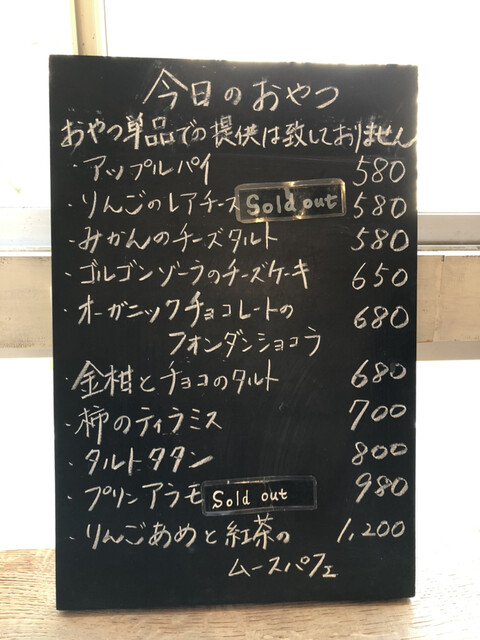 今日のおやつ
おやつ単品での提供は致しておりません
・アップルパイ 580
・りんごのレアチーズ Sold out 580
・みかんのチーズタルト 580
・ゴルゴンゾーラのチーズケーキ 650
・オーガニックチョコレートの
フォンダンショコラ 680
・金柑とチョコのタルト 680
・柿のティラミス 700
・タルトタタン 800
・プリンアラモ Sold out 980
・りんごあめと紅茶の 1,200
ムースパフェ